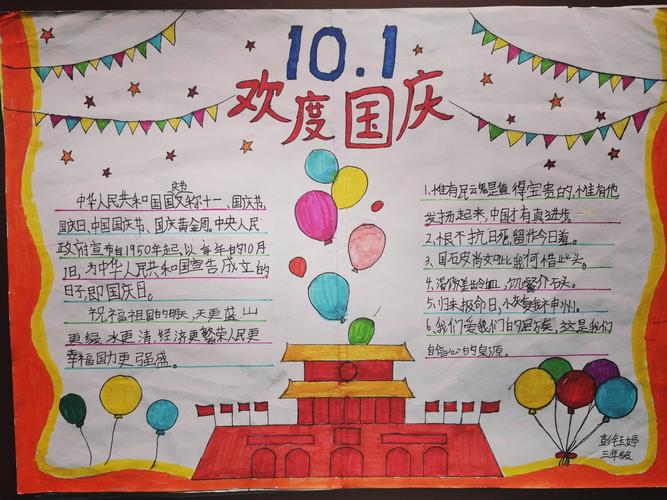 10.1
欢度国庆
中华人民共和国国庆节又称十一、国庆节、
国庆日、中国国庆节、国庆黄金周。中央人民
政府宣布自1950年起,以每年的10月
1日,为中华人民共和国宣告成立的
日子,即国庆日。
祝福祖国的明天,天更蓝、山
更绿、水更清、经济更繁荣人民更
幸福国力更强盛。
1.惟有民云魂是值得宝贵的,惟有他
发扬起来,中国才有真进步。
2.恨不抗日死,留作今日羞。
3.国石皮尚如此,我何惜此头。
4.
5.归来报命日,
6.我们爱我们的民族,这是我们
自信心的泉源。
三年级